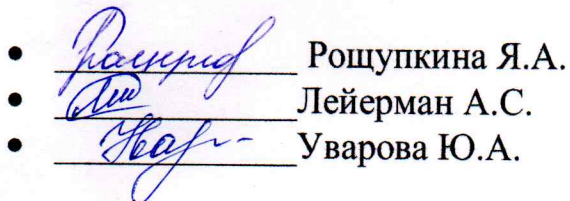 • Рощупкина Я.А.
• Лейерман А.С.
• Уварова Ю.А.